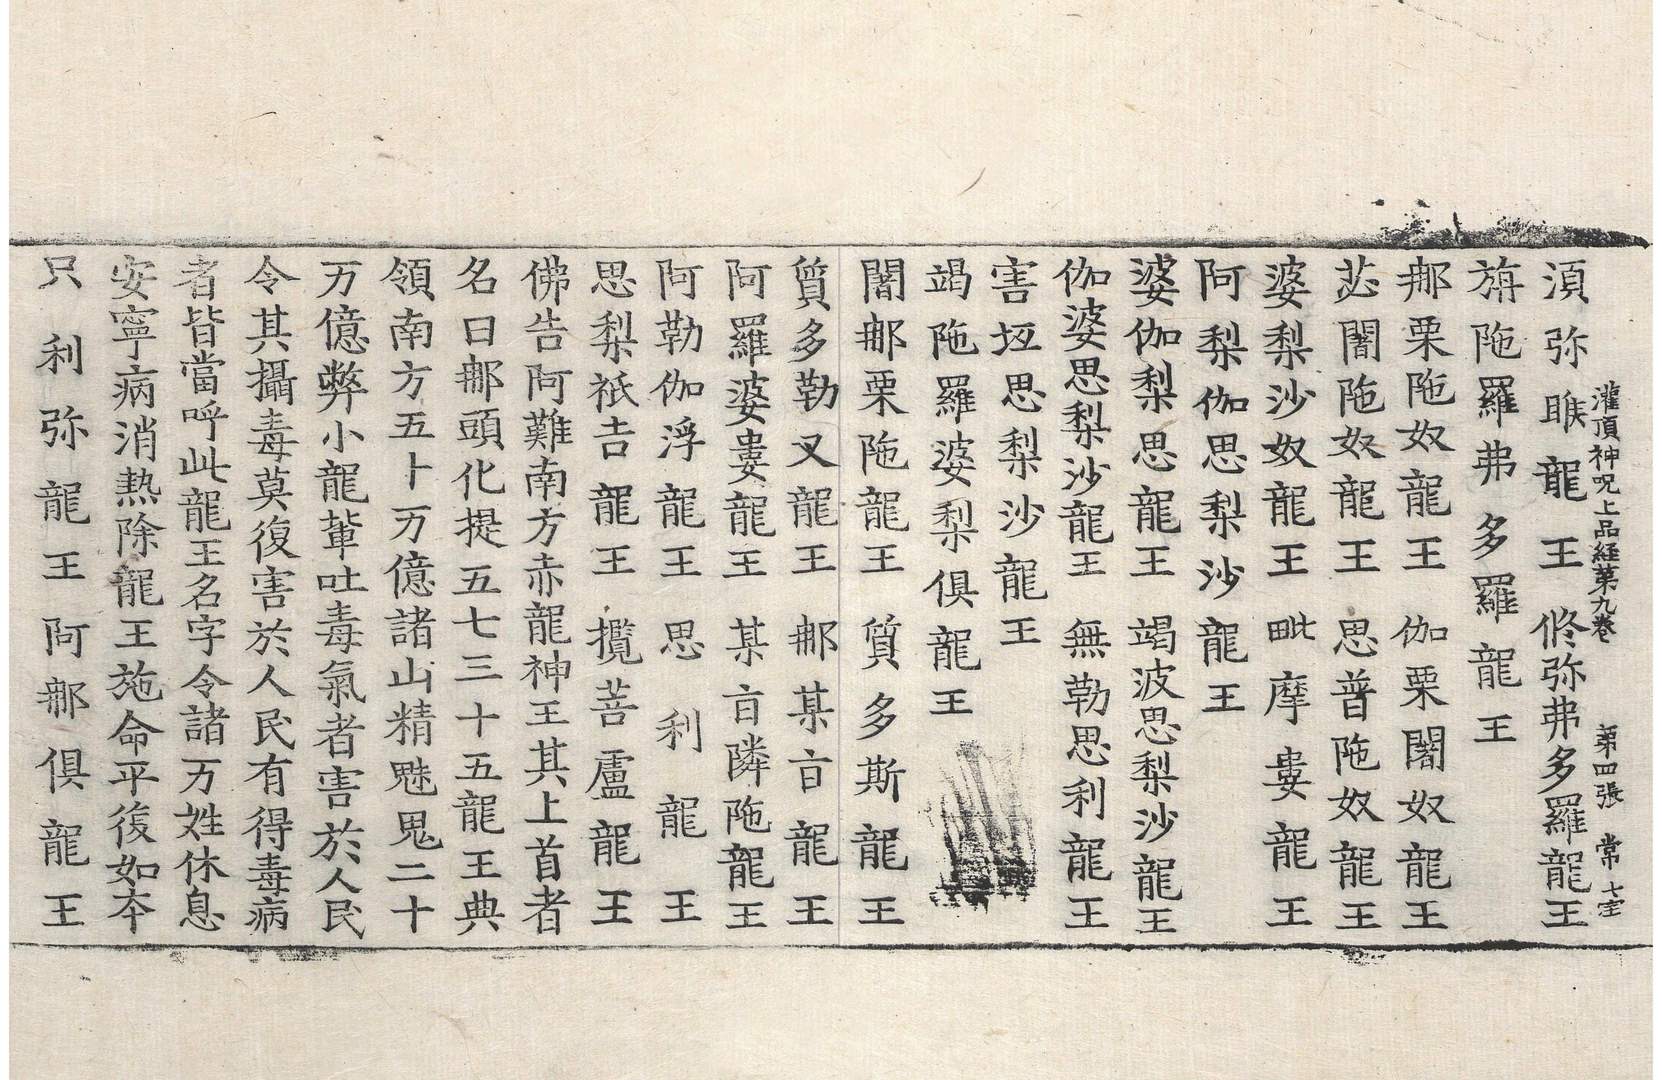 灌頂神呪上品経第九卷 第四張 常 七室
湏弥睺龍王 脩弥弗多羅龍王
旃陁羅弗多羅龍王
那栗陁奴龍王 伽栗闍奴龍王
苾闍陁奴龍王 思普陁奴龍王
婆梨沙奴龍王 毗摩婁龍王
阿梨伽思梨沙龍王
婆伽梨思龍王 竭波思梨沙龍王
伽婆思梨沙龍王 無勒思利龍王
害㘴思梨沙龍王
竭陁羅婆梨俱龍王
闍那栗陁龍王 質多斯龍王
質多勒叉龍王 那某亯龍王
阿羅婆婁龍王 某亯隣陁龍王
阿勒伽浮龍王 思利龍王
思梨祇吉龍王 攬菩盧龍王
佛告阿難南方赤龍神王其上首者
名曰那頭化提五七三十五龍王典
領南方五十万億諸山精魅鬼二十
万億弊小龍輩吐毒氣者害於人民
令其攝毒莫復害於人民有得毒病
者皆當呼此龍王名字令諸万姓休息
安寧病消熱除龍王施命平復如夲
只利弥龍王阿那俱龍王